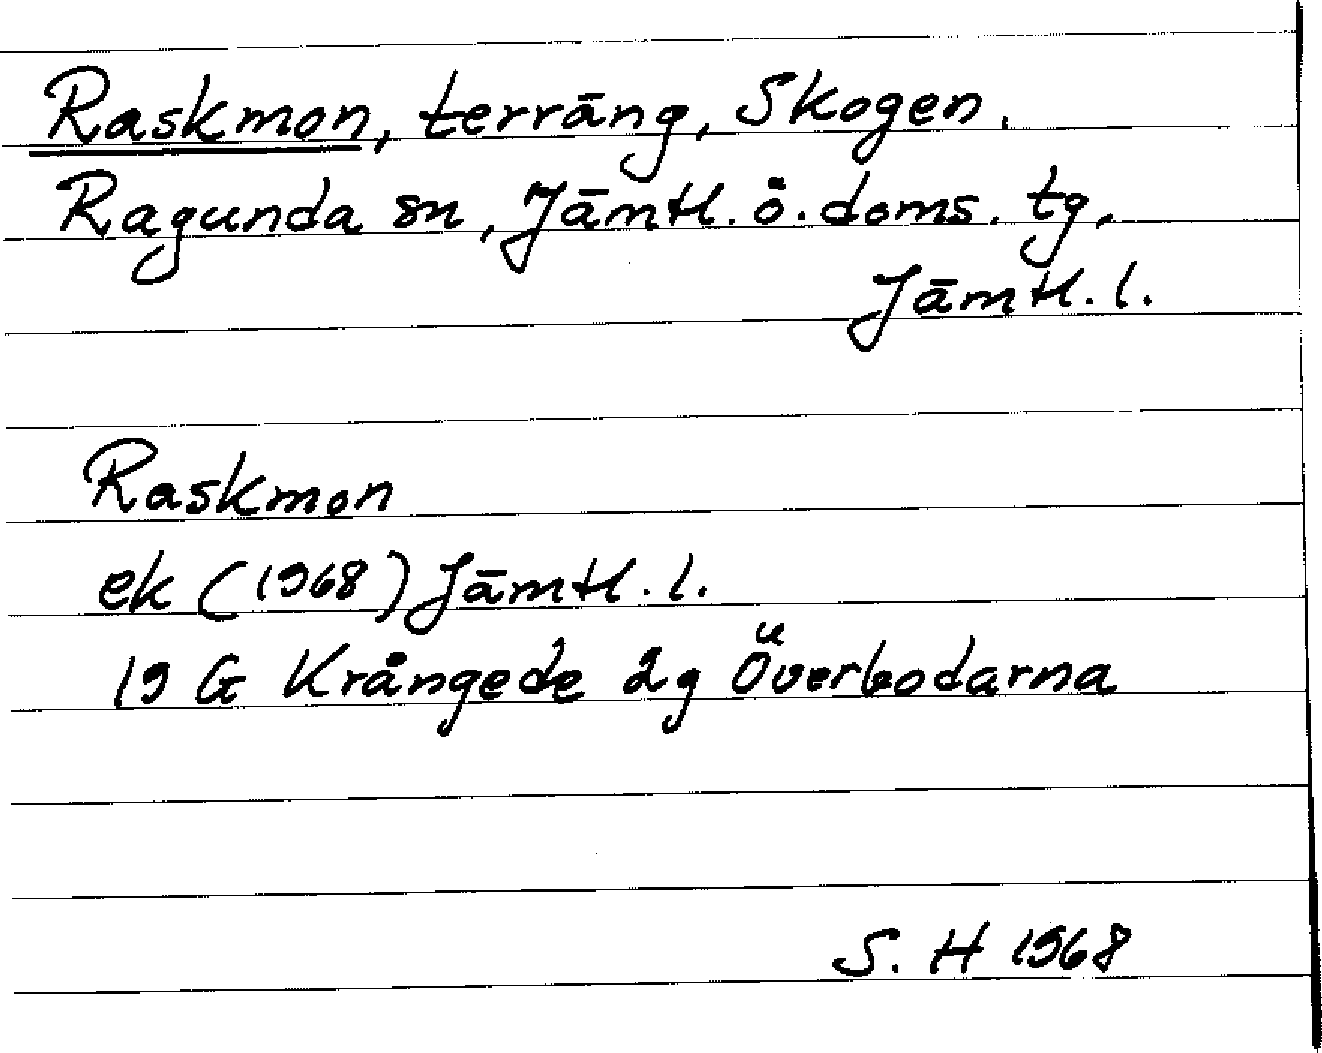 Raskmon, terräng, Skogen.
Ragunda sn, Jämtl. ö. doms. tg,
Jämtl. l.
Raskmon
ek (1968) Jämtl. l.
19 G Krångede 2g Överbodarna
S. H 1968